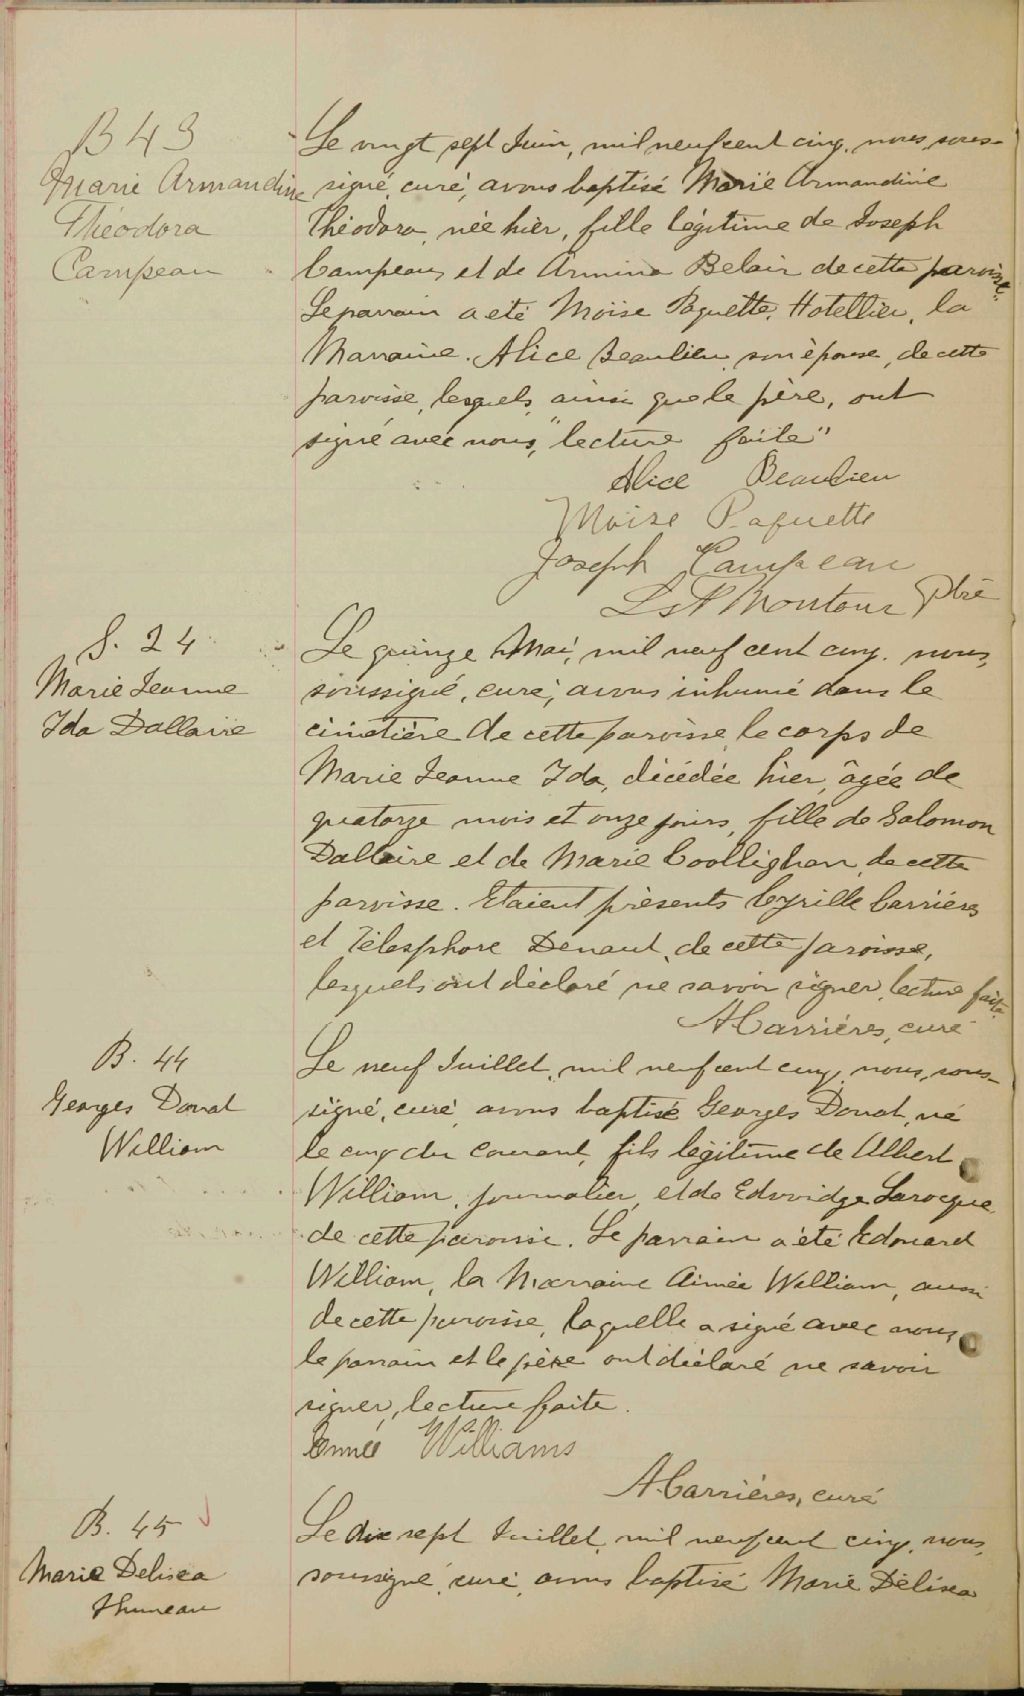 B 43
Marie Armandine
Théodora
Campeau
Le vingt sept Juin, mil neuf cent cinq, nous, sous-
signé, curé, avons baptisé Marie Armandine
Théodora, née hier, fille légitime de Joseph
Campeau, et de Armina Belair de cette paroisse.
Le parrain a eté Moïse Paquette, Hotellier, la
Marraine, Alice Beaulieu, son épouse, de cette
paroisse, lesquels, ainsi que le père, ont
signé avec nous, "lecture faite"
Alice Beaulieu
Moise Paquette
Joseph Campeau
Ls Montour Ptre
S. 24
Marie Jeanne
Ida Dallaire
Le quinze Mai, mil neuf cent cinq, nous,
soussigné, curé, avons inhumé dans le
cimetière de cette paroisse, le corps de
Marie Jeanne Ida, décédée hier, âgée de
quatorze mois et onze jours, fille de Salomon
Dallaire et de Marie Coolighan, de cette
paroisse. Etaient présents Cyrille Carrières
et Télesphore Denaut, de cette paroisse,
lesquels ont déclaré ne savoir signer, lecture faite.
A Carrières, curé
B. 44
Georges Donat
William
Le neuf Juillet, mil neuf cent cinq, nous, sous-
signé, curé, avons baptisé Georges Donat, né
le cinq du courant, fils légitime de Albert
William, journalier, et de Edwidge Larocque,
de cette paroisse. Le parrain a été Edouard
William, la Marraine Aimée William, aussi
de cette paroisse, laquelle a signé avec nous,
le parrain et le père ont déclaré ne savoir
signer, lecture faite.
Williams
A Carrières, curé
B. 45
Marie Delisca
Thuneau
Le dix sept Juillet, mil neuf cent cinq, nous,
soussigné, curé, avons baptisé Marie Délisca